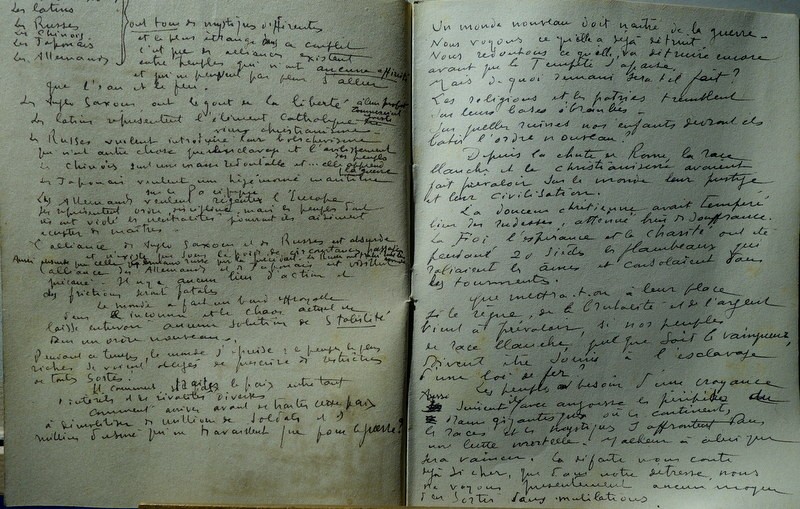 Les latins
Les Russes
Les Chinois
Les Japonais
Les Allemands
sont tous de mystiques différentes
et le plus étrange dans ce conflit
c'est que des alliances existent
entre peuples qui n'ont aucune affinité
et qui ne peuvent pas plus s'allier
que l'eau et le feu.
Les Anglo Saxons ont le goût de la liberté
Les latins représentent l'élément catholique
Les Russes veulent introduire leur bolchevisme
qui n'est autre chose que l'esclavage et l'avilissement
des peuples
les Chinois sont une masse redoutable et
la guerre
Les Japonais veulent une hégémonie maritime
sur le Pacifique
Les Allemands veulent l'Europe
Ils représentent ordre, discipline, mais les peuples dont
ils ont violé les neutralités pourront difficilement
accepter de maîtres.
L'alliance des Anglo Saxons et des Russes est absurde
l'alliance des Allemands et des Japonais est
Il n'y a aucun lien d'action et
les frictions seront fatales
Le monde a fait un bond effroyable
dans l'inconnu et le chaos actuel ne
laisse entrevoir aucune solution de Stabilité
dans un ordre nouveau.
Pendant ce temps, le monde s'épuise, les peuples les plus
riches se voient obligés de de restrictions
de toutes sortes.
Et comment la paix entre tant
d'intérêts et de rivalités diverses
Comment arriver avant de traiter cette paix
à démobiliser des millions de soldats et
millions d'usines qui ne travaillent que pour la guerre?
Un monde nouveau doit naître de la guerre -
Nous voyons ce qu'elle a déjà détruit
Nous redoutons ce qu'elle va détruire encore
avant que la Tempête s'apaise.
Mais de quoi demain sera t'il fait?
Les religions et les patries tremblent
sur leurs bases ébranlées -
Sur quelles ruines nos enfants devront-ils
bâtir l'ordre nouveau?
Depuis la chute de Rome, la race
blanche et le christianisme avaient
fait prévaloir sur le monde leur prestige
et leur civilisation.
La douceur chrétienne avait tempéré
bien des rudesses, atténué bien des souffrances.
La Foi l'espérance et la charité ont été
pendant 20 siècles les flambeaux qui
ralliaient les âmes et consolaient dans
les tourments.
Que mettra-t-on à leur place
Si le règne de la brutalité et de l'argent
vient à prévaloir, si nos peuples
de race blanche, quel que soit le vainqueur,
doivent être soumis à l'esclavage
d'une loi de fer?
Les peuples ont besoin d'une croyance
Aussi suivent ils avec angoisse les péripéties du
drame gigantesque où les continents,
les races et les mystiques s'affrontent dans
une lutte mortelle. Malheur à celui qui
sera vaincu. La défaite nous coûte
déjà si cher, que dans notre détresse, nous
ne voyons présentement aucun moyen
d'en sortir sans mutilations.